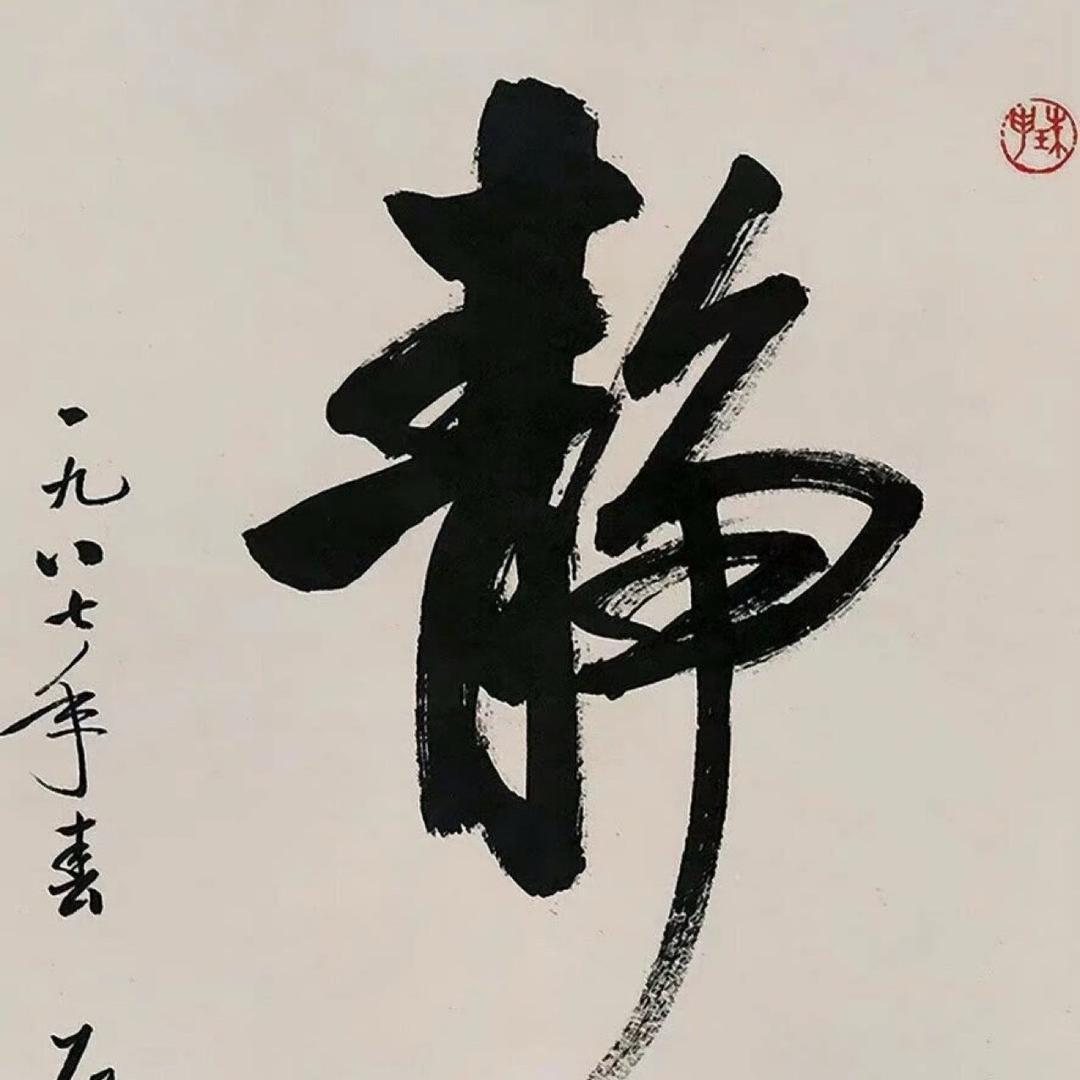 静
一九八七年春